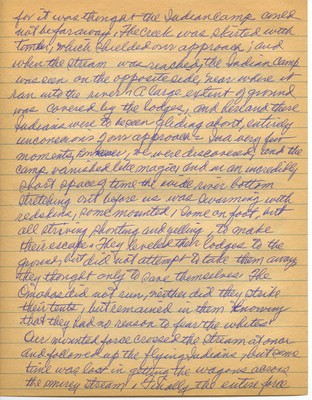 for it was thought the Indian camp could
not be far away. The creek was skirted with
timber, which shielded our approach; and
when the stream was reached, the Indian Camp
was seen on the opposite side, near where it
ran into the river. A large extent of ground
was covered by the lodges, and here and there
Indians were to be seen gliding about, entirely
unconscious of our approach. In a very few
moments, however, we were discovered, and the
camp vanished like magic; and in an incredibly
short space of time the wide river bottom
stretching out before us was swarming with
redskins, some mounted, some on foot, but
all striving, shouting and yelling, to make
their escape. They leveled their lodges to the
ground, but did not attempt to take them away,
they thought only to save themselves. The
Omahas did not run, neither did they strike
their tents, but remained in them knowing
that they had no reason to fear the whites.
Our mounted force crossed the stream at once
and followed up the flying Indians, but some
time was lost in getting the wagons across
the miry stream. Finally the entire force